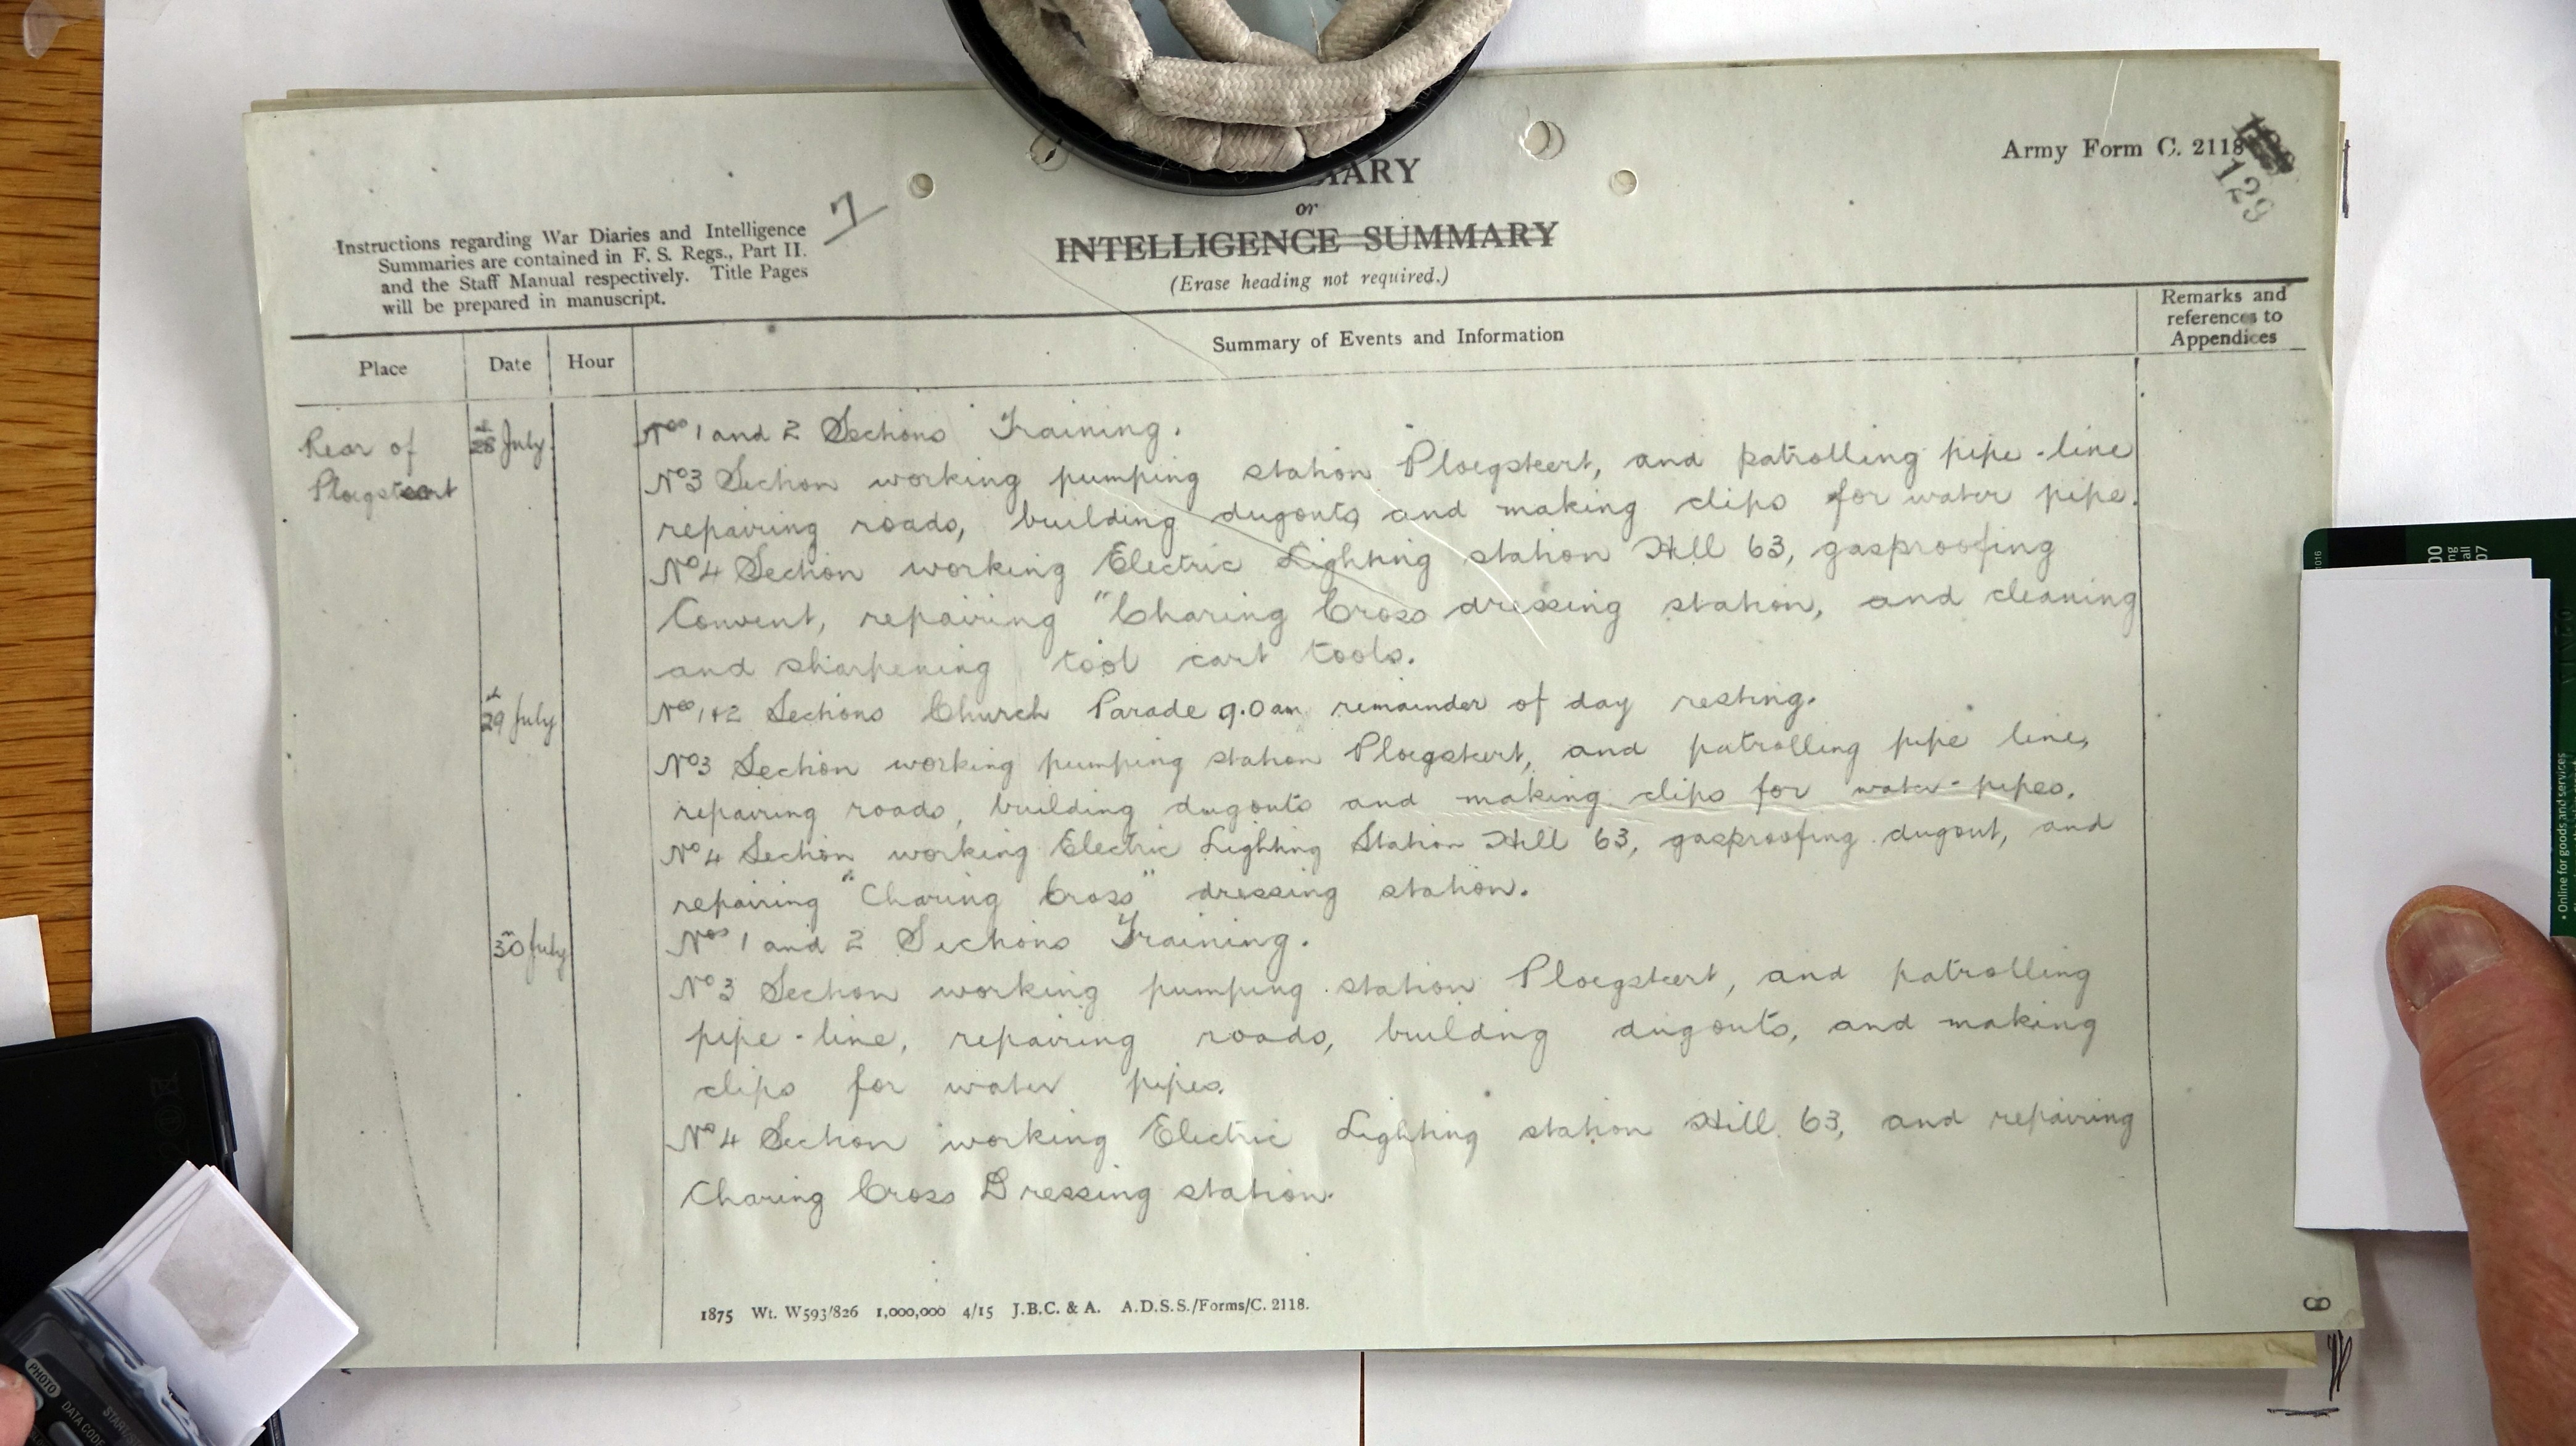 Army Form C. 2118
129
7
DIARY
or
INTELLIGENCE SUMMARY
(Erase heading not required.)
Instructions regarding War Diaries and Intelligence
Summaries are contained in F. S. Regs., Part II.
and the Staff Manual respectively. Title Pages
will be prepared in manuscript.
Place
Date
Hour
Summary of Events and Information
Remarks and
references to
Appendices
Rear of
Ploegsteert
28th July
Nos 1 and 2 Sections Training.
No 3 Section working pumping station Ploegsteert, and patrolling pipe-line
repairing roads, building dugouts and making clips for water pipe.
No 4 Section working Electric Lighting station Hill 63, gasproofing
Convent, repairing "Charing Cross dressing station, and cleaning
and sharpening tool cart tools.
29th July
Nos 1+2 Sections Church Parade 9.0 am remainder of day resting.
No 3 Section working pumping station Ploegstert, and patrolling pipe line,
repairing roads, building dugouts and making clips for water-pipes.
No 4 Section working Electric Lighting Station Hill 63, gasproofing dugout, and
repairing "Charing Cross" dressing station.
30th July
Nos 1 and 2 Sections Training.
No 3 Section working pumping station Ploegsteert, and patrolling
pipe-line, repairing roads, building dugouts, and making
clips for water pipes.
No 4 Section working Electric Lighting station Hill 63, and repairing
Charing Cross Dressing station.
1875 Wt. W593/826 1,000,000 4/15 J.B.C. & A. A.D.S.S./Forms/C. 2118.
8
PHOTO
DATA CODE
• Online for goods and services